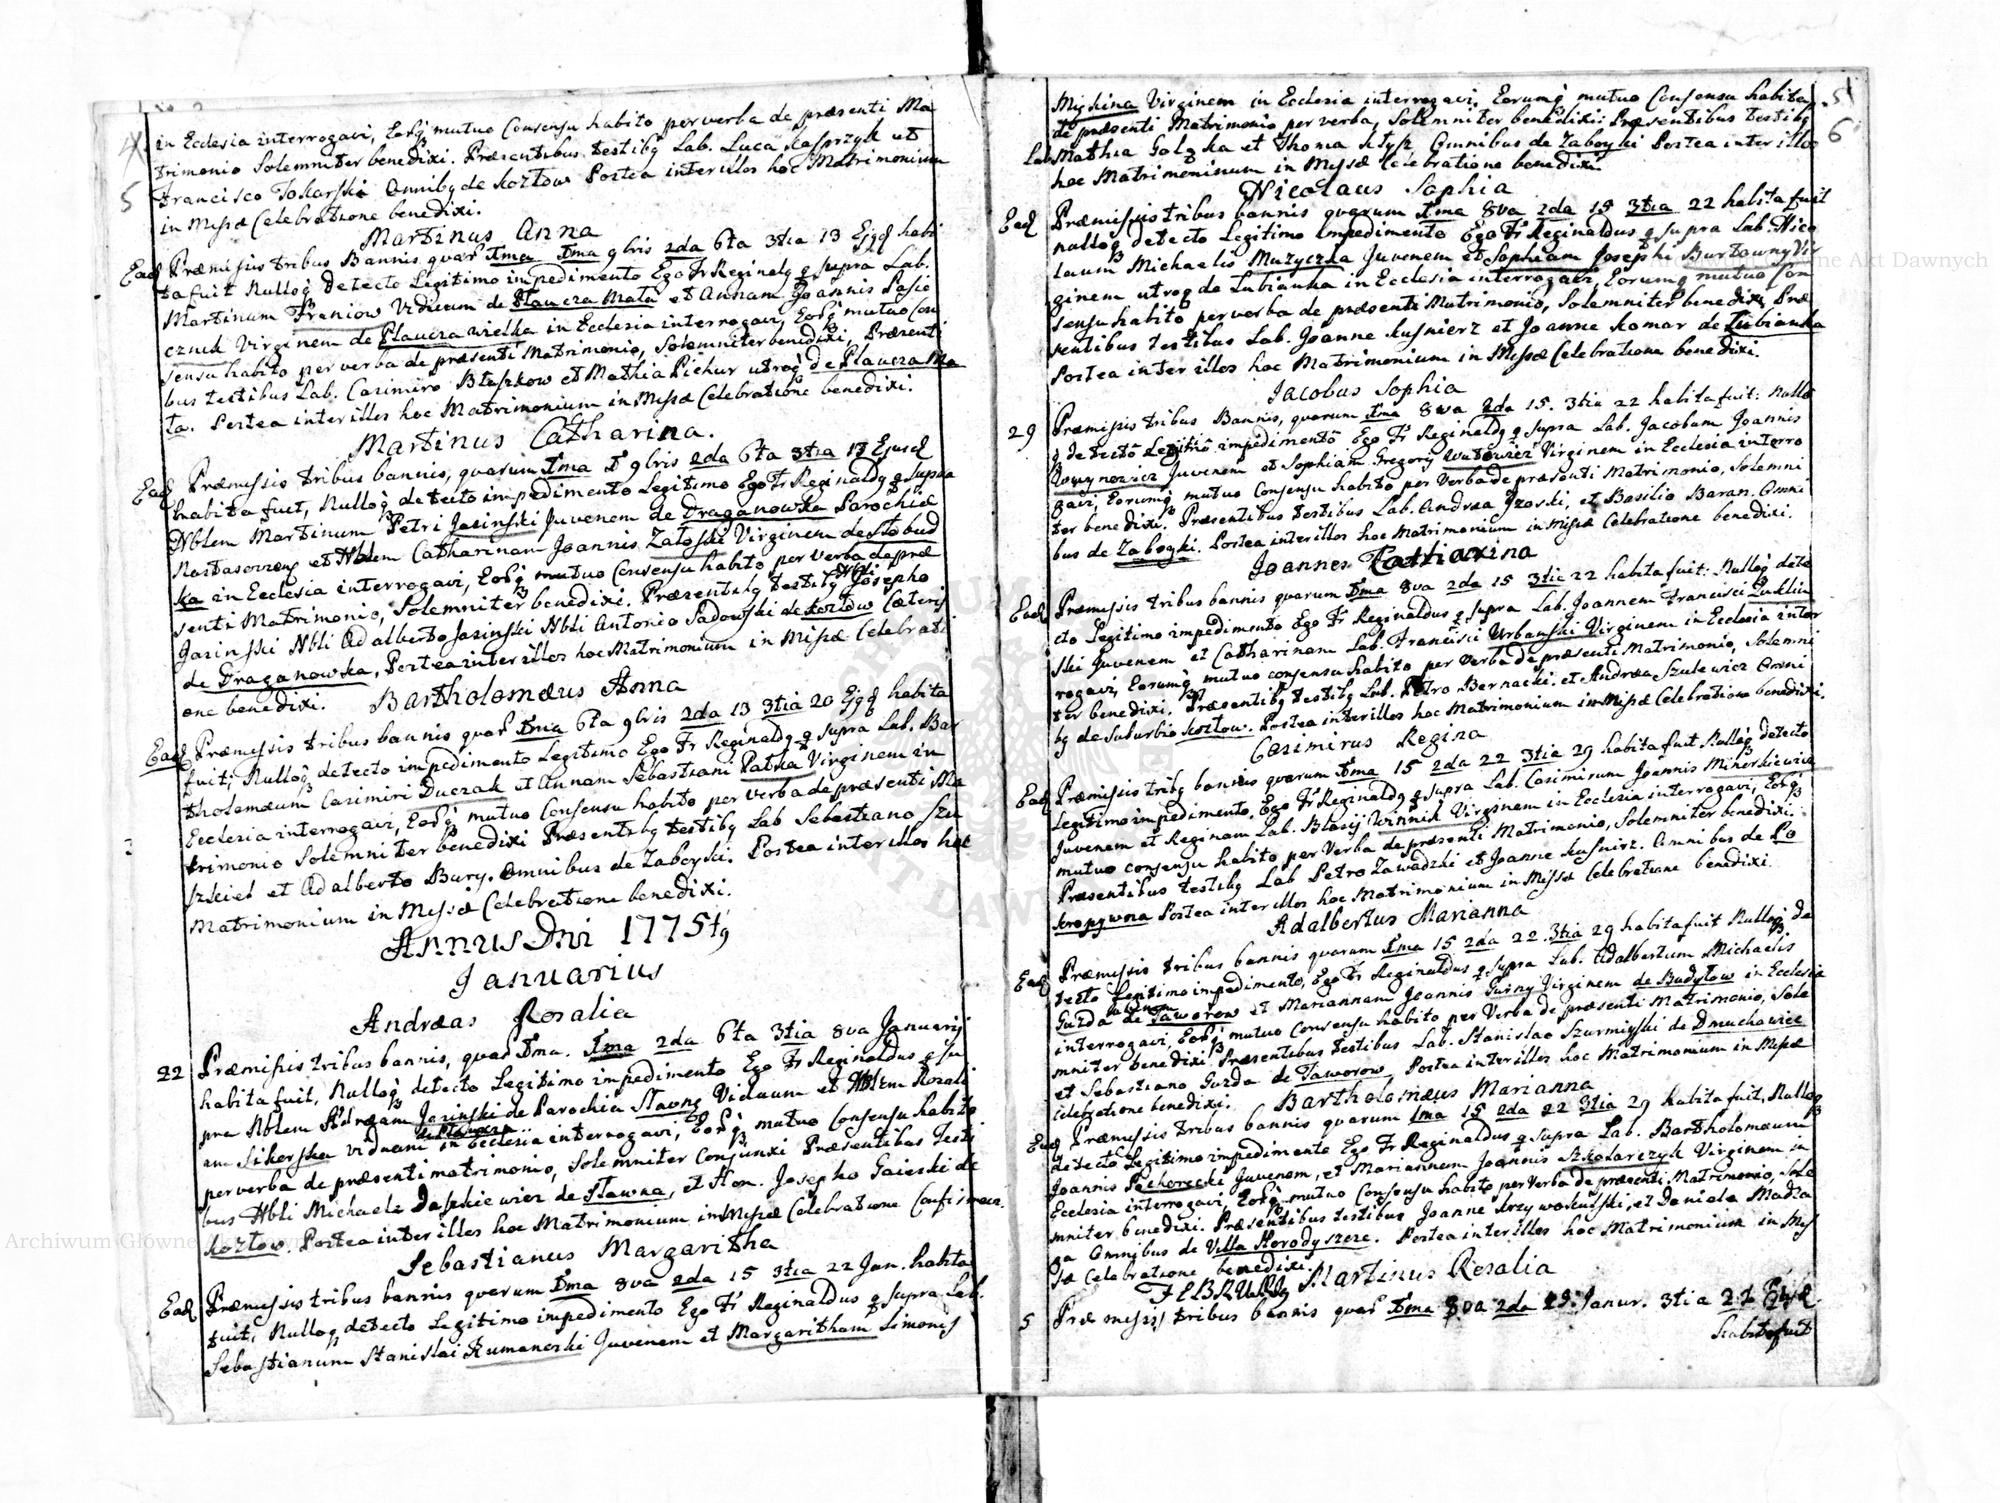 in Ecclesia interrogavi, Eorq mutuo Consensu habito per verba de præsenti Ma
trimonio Solemniter benedixi. Præsentibus testibq Lab. Luca Kasprzyk et
Francisco Tokarski Omnibq de Kozłow Postea inter illos hoc Matrimonium
in Missæ Celebratione benedixi.
Martinus Anna
Ead Præmissis tribus Bannis quar Ima 9bris 2da 6ta 3tia 13 Ejqd habi
ta fuit Nulloq detecto Legitimo impedimento Ego Fr Reginaldq q supra Lab.
Martinum Franiow Viduum de Płaucza Mała et Annam Joannis Pasie
cznik Virginem de Płaucza wielka in Ecclesia interrogavi, Eorq mutuo Con
sensu habito per verba de præsenti Matrimonio, Solemniter benedixi, Præsenti
bus testibus Lab. Casimiro Błaszkow et Mathia Pichur utroq de Płaucza Ma
ła. Postea inter illos hoc Matrimonium in Missæ Celebratione benedixi.
Martinus Catharina.
Ead Præmissis tribus bannis, quarum Ima 9bris 2da 6ta 3tia 13 Ejusd
habita fuit, Nulloq detecto impedimento Legitimo Ego Fr Reginaldq q supra
Nblem Martinum Petri Jasinski Juvenem de Draganowka Parochiæ
et Nblem Catharinam Joannis Załoski Virginem de Słobud
ka in Ecclesia interrogavi, Eorq mutuo Consensu habito per verba de præ
senti Matrimonio, Solemniter benedixi. Præsentibq testibq Nbli Josepho
Jasinski Nbli Adalberto Jasinski Nbli Antonio Sadowski de Kozłow Cæteris
de Draganowka, Postea inter illos hoc Matrimonium in Missæ Celebrati
one benedixi. Bartholomæus Anna
Ead Præmissis tribus bannis quar Ima 6ta 9bris 2da 13 3tia 20 Ejqd habita
fuit; Nulloq detecto impedimento Legitimo Ego Fr Reginaldq q supra Lab. Bar
tholomæum Casimiri Duczak et Annam Sebastiani Patka Virginem in
Ecclesia interrogavi, Eorq mutuo Consensu habito per verba de præsenti Ma
trimonio Solemniter benedixi Præsentibq testibq Lab Sebastiano Szu
szkiel et Adalberto Bury. Omnibus de Zaboyki. Postea inter illos hoc
Matrimonium in Missæ Celebratione benedixi.
Annus Dni 1775tq
Januarius
Andræas Rosalia
22 Præmissis tribus bannis, quar Ima. Ima 2da 6ta 3tia 8va Januarij
habita fuit, Nulloq detecto Legitimo impedimento Ego Fr Reginaldus q su
pra Nblem Andræam Jasinski de Parochia Sławne Viduum et Nblem Rosali
am Sikorska viduam de Płaucza in Ecclesia interrogavi, Eorq mutuo Consensu habito
per verba de præsenti matrimonio, Solemniter Conjunxi Præsentibus Testi
bus Nbli Michaele Daszkiewicz de Sławna, et Hon. Josepho Gaieski de
Kozłow. Postea inter illos hoc Matrimonium in Missæ Celebratione Confirmav.
Sebastianus Margaritha
Ead Præmissis tribus bannis quarum Ima 8va 2da 15 3tia 22 Jan. habita
fuit, Nulloq detecto Legitimo impedimento Ego Fr Reginaldus q supra Lab.
Sebastianum Stanislai Rumanoski Juvenem et Margaritham Simonis
5
6
Miskina Virginem in Ecclesia interrogavi, Eorumq mutuo Consensu habito
de præsenti Matrimonio per verba, Solemniter benedixi: Præsentibus testibq
Lab Mathia Galzka et Thoma Kłysz Omnibus de Zaboyki Postea inter illos
hoc Matrimonium in Missæ Celebratione benedixi.
Nicolaus Sophia
Ead Præmissis tribus bannis quarum Ima 8va 2da 15 3tia 22 habita fuit
nulloq detecto Legitimo Impedimento Ego Fr Reginaldus q supra Lab. Nico
laum Michaelis Muzyczka Juvenem et Sophiam Josephi Burtowny Vir
ginem utroq de Lubianka in Ecclesia interrogavi, Eorumq mutuo Con
sensu habito per verba de præsenti Matrimonio, Solemniter benedixi Præ
sentibus testibus Lab. Joanne Kusnierz et Joanne Komar de Lubianka
Postea inter illos hoc Matrimonium in Missæ Celebratione benedixi.
Jacobus Sophia
29 Præmissis tribus Bannis, quarum Ima 8va 2da 15. 3tia 22 habita fuit: Nullo
q detecto Legitimo impedimento Ego Fr Reginaldq q supra Lab. Jacobum Joannis
Juvenem et Sophiam Gregorij Watowicz Virginem in Ecclesia interro
gavi, Eorumq mutuo Consensu habito per Verba de præsenti Matrimonio, Solemni
ter benedixi. Præsentibus testibus Lab. Andræa Jzoski, et Basilio Baran. Omni
bus de Zaboyki. Postea inter illos hoc Matrimonium in Missæ Celebratione benedixi.
Joannes Catharina
Ead Præmissis tribus bannis quarum Ima 8va 2da 15 3tia 22 habita fuit: Nulloq dete
cto Legitimo impedimento Ego Fr Reginaldus q supra Lab. Joannem Francisci Zuklin
ski Juvenem et Catharinam Lab. Francisci Urbanski Virginem in Ecclesia inter
rogavi, Eorumq mutuo consensu habito per Verba de præsenti Matrimonio, Solemni
ter benedixi. Præsentibq testibq Lab. Petro Bernacki. et Andræa Szulewicz Omni
bq de Suburbio Kozłow. Postea inter illos hoc Matrimonium in Missæ Celebratione benedixi.
Casimirus Regina
Ead Præmissis tribq bannis quarum Ima 15 2da 22 3tia 29 habita fuit Nulloq detecto
Legitimo impedimento, Ego Fr Reginaldq q supra Lab. Casimirum Joannis
Juvenem et Reginam Lab. Blasij Winnik Virginem in Ecclesia interrogavi, Eorq
mutuo consensu habito per Verba de præsenti Matrimonio, Solemniter benedixi.
Præsentibus testibq Lab Petro Zawadzki et Joanne Kusnirz. Omnibus de Po
kropywna Postea inter illos hoc Matrimonium in Missæ Celebratione benedixi
Adalbertus Marianna
Ead Præmissis tribus bannis quarum Ima 15 2da 22. 3tia 29 habita fuit Nulloq de
tecto Legitimo impedimento, Ego Fr Reginaldus q supra Lab. Adalbertum Michaelis
Guzda Juvenem de Jaworow et Mariannam Joannis Guiny Virginem de Budyłow in Ecclesia
interrogavi, Eorq mutuo Consensu habito per Verba de præsenti Matrimonio, Sole
mniter benedixi Præsentibus testibus Lab. Stanislao Szurmiyski de Dmuchowiec
et Sebastiano Guzda de Jaworow Postea inter illos hoc Matrimonium in Missæ
Celebratione benedixi. Bartholomæus Marianna
Ead Præmissis tribus bannis quarum Ima 15 2da 22 3tia 29 habita fuit, Nulloq
detecto Legitimo impedimento Ego Fr Reginaldus q supra Lab. Bartholomæum
Joannis Pechorecki Juvenem, et Mariannam Joannis Szkolarczyk Virginem in
Ecclesia interrogavi, Eorq mutuo Consensu habito per Verba de præsenti Matrimonio, Sole
mniter benedixi. Præsentibus testibus Joanne Krzywokulski, et Daniele Madza
ga Omnibus de Villa Horodyszcze. Postea inter illos hoc Matrimonium in Mis
sæ Celebratione benedixi.
FEBRUARIq Martinus Rosalia
5 Præmissis tribus bannis quar Ima 8va 2da 15. Janur. 3tia 22 Ejqd
habita fuit
Archiwum Główne Akt Dawnych
Archiwum Główne Akt Dawnych